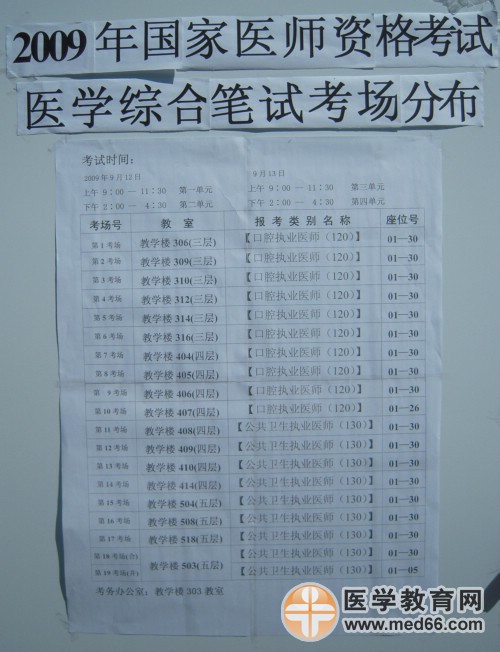 2009年国家医师资格考试
医学综合笔试考场分布
考试时间：
2009年9月12日 9月13日
上午 9：00— 11：30 第一单元 上午 9：00— 11：30 第三单元
下午 2：00— 4：30 第二单元 下午 2：00— 4：30 第四单元
考场号 教 室 报 考 类 别 名 称 座位号
第1考场 教学楼 306(三层) 【口腔执业医师（120）】 01—30
第2考场 教学楼 309(三层) 【口腔执业医师（120）】 01—30
第3考场 教学楼 310(三层) 【口腔执业医师（120）】 01—30
第4考场 教学楼 312(三层) 【口腔执业医师（120）】 01—30
第5考场 教学楼 314(三层) 【口腔执业医师（120）】 01—30
第6考场 教学楼 316(三层) 【口腔执业医师（120）】 01—30
第7考场 教学楼 404(四层) 【口腔执业医师（120）】 01—30
第8考场 教学楼 405(四层) 【口腔执业医师（120）】 01—30
第 9考场 教学楼 406(四层) 【口腔执业医师（120）】 01—30
第10考场 教学楼 407(四层) 【口腔执业医师（120）】 01—26
第11考场 教学楼 408(四层) 【公共卫生执业医师（130）】 01—30
第12考场 教学楼 409(四层) 【公共卫生执业医师（130）】 01—30
第13考场 教学楼 410(四层) 【公共卫生执业医师（130）】 01—30
第14考场 教学楼 414(四层) 【公共卫生执业医师（130）】 01—30
第15考场 教学楼 504(五层) 【公共卫生执业医师（130）】 01—30
第16考场 教学楼 508(五层) 【公共卫生执业医师（130）】 01—30
第17考场 教学楼 518(五层) 【公共卫生执业医师（130）】 01—30
第18考场 教学楼 503(五层) 【公共卫生执业医师（130）】 01—30
第19考场 【公共卫生执业医师（130）】 01—05
考务办公室：教学楼 303 教室
医学教育网
www.med66.com